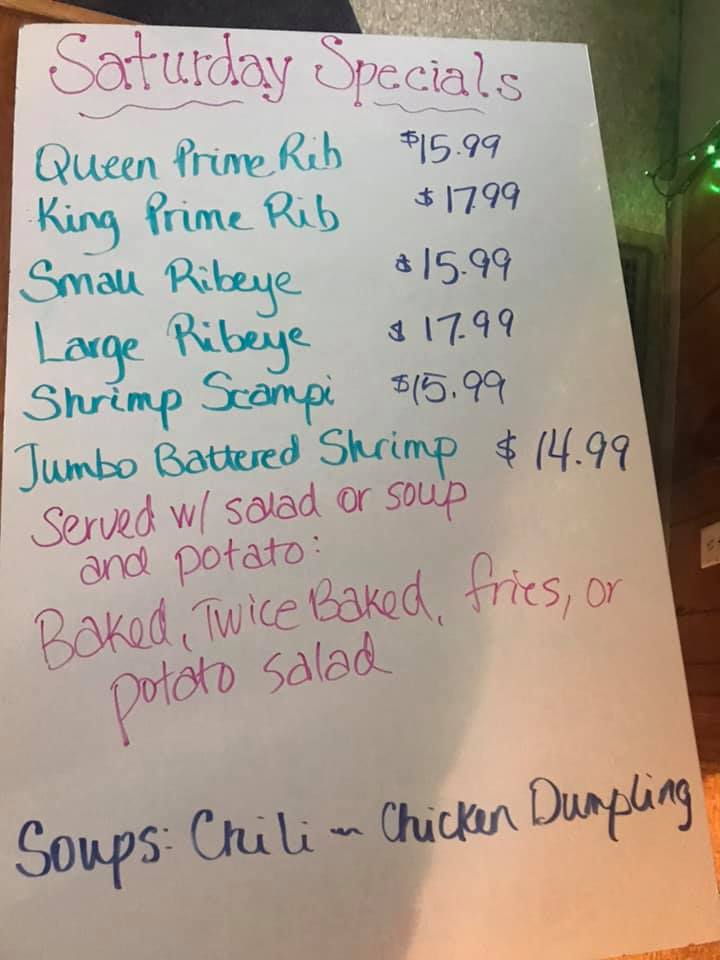 Saturday Specials
Queen Prime Rib $15.99
King Prime Rib $17.99
Small Ribeye $15.99
Large Ribeye $17.99
Shrimp Scampi $15.99
Jumbo Battered Shrimp $14.99
Served w/ salad or soup
and potato:
Baked, Twice Baked, fries, or
potato salad
Soups: Chili ~ Chicken Dumpling